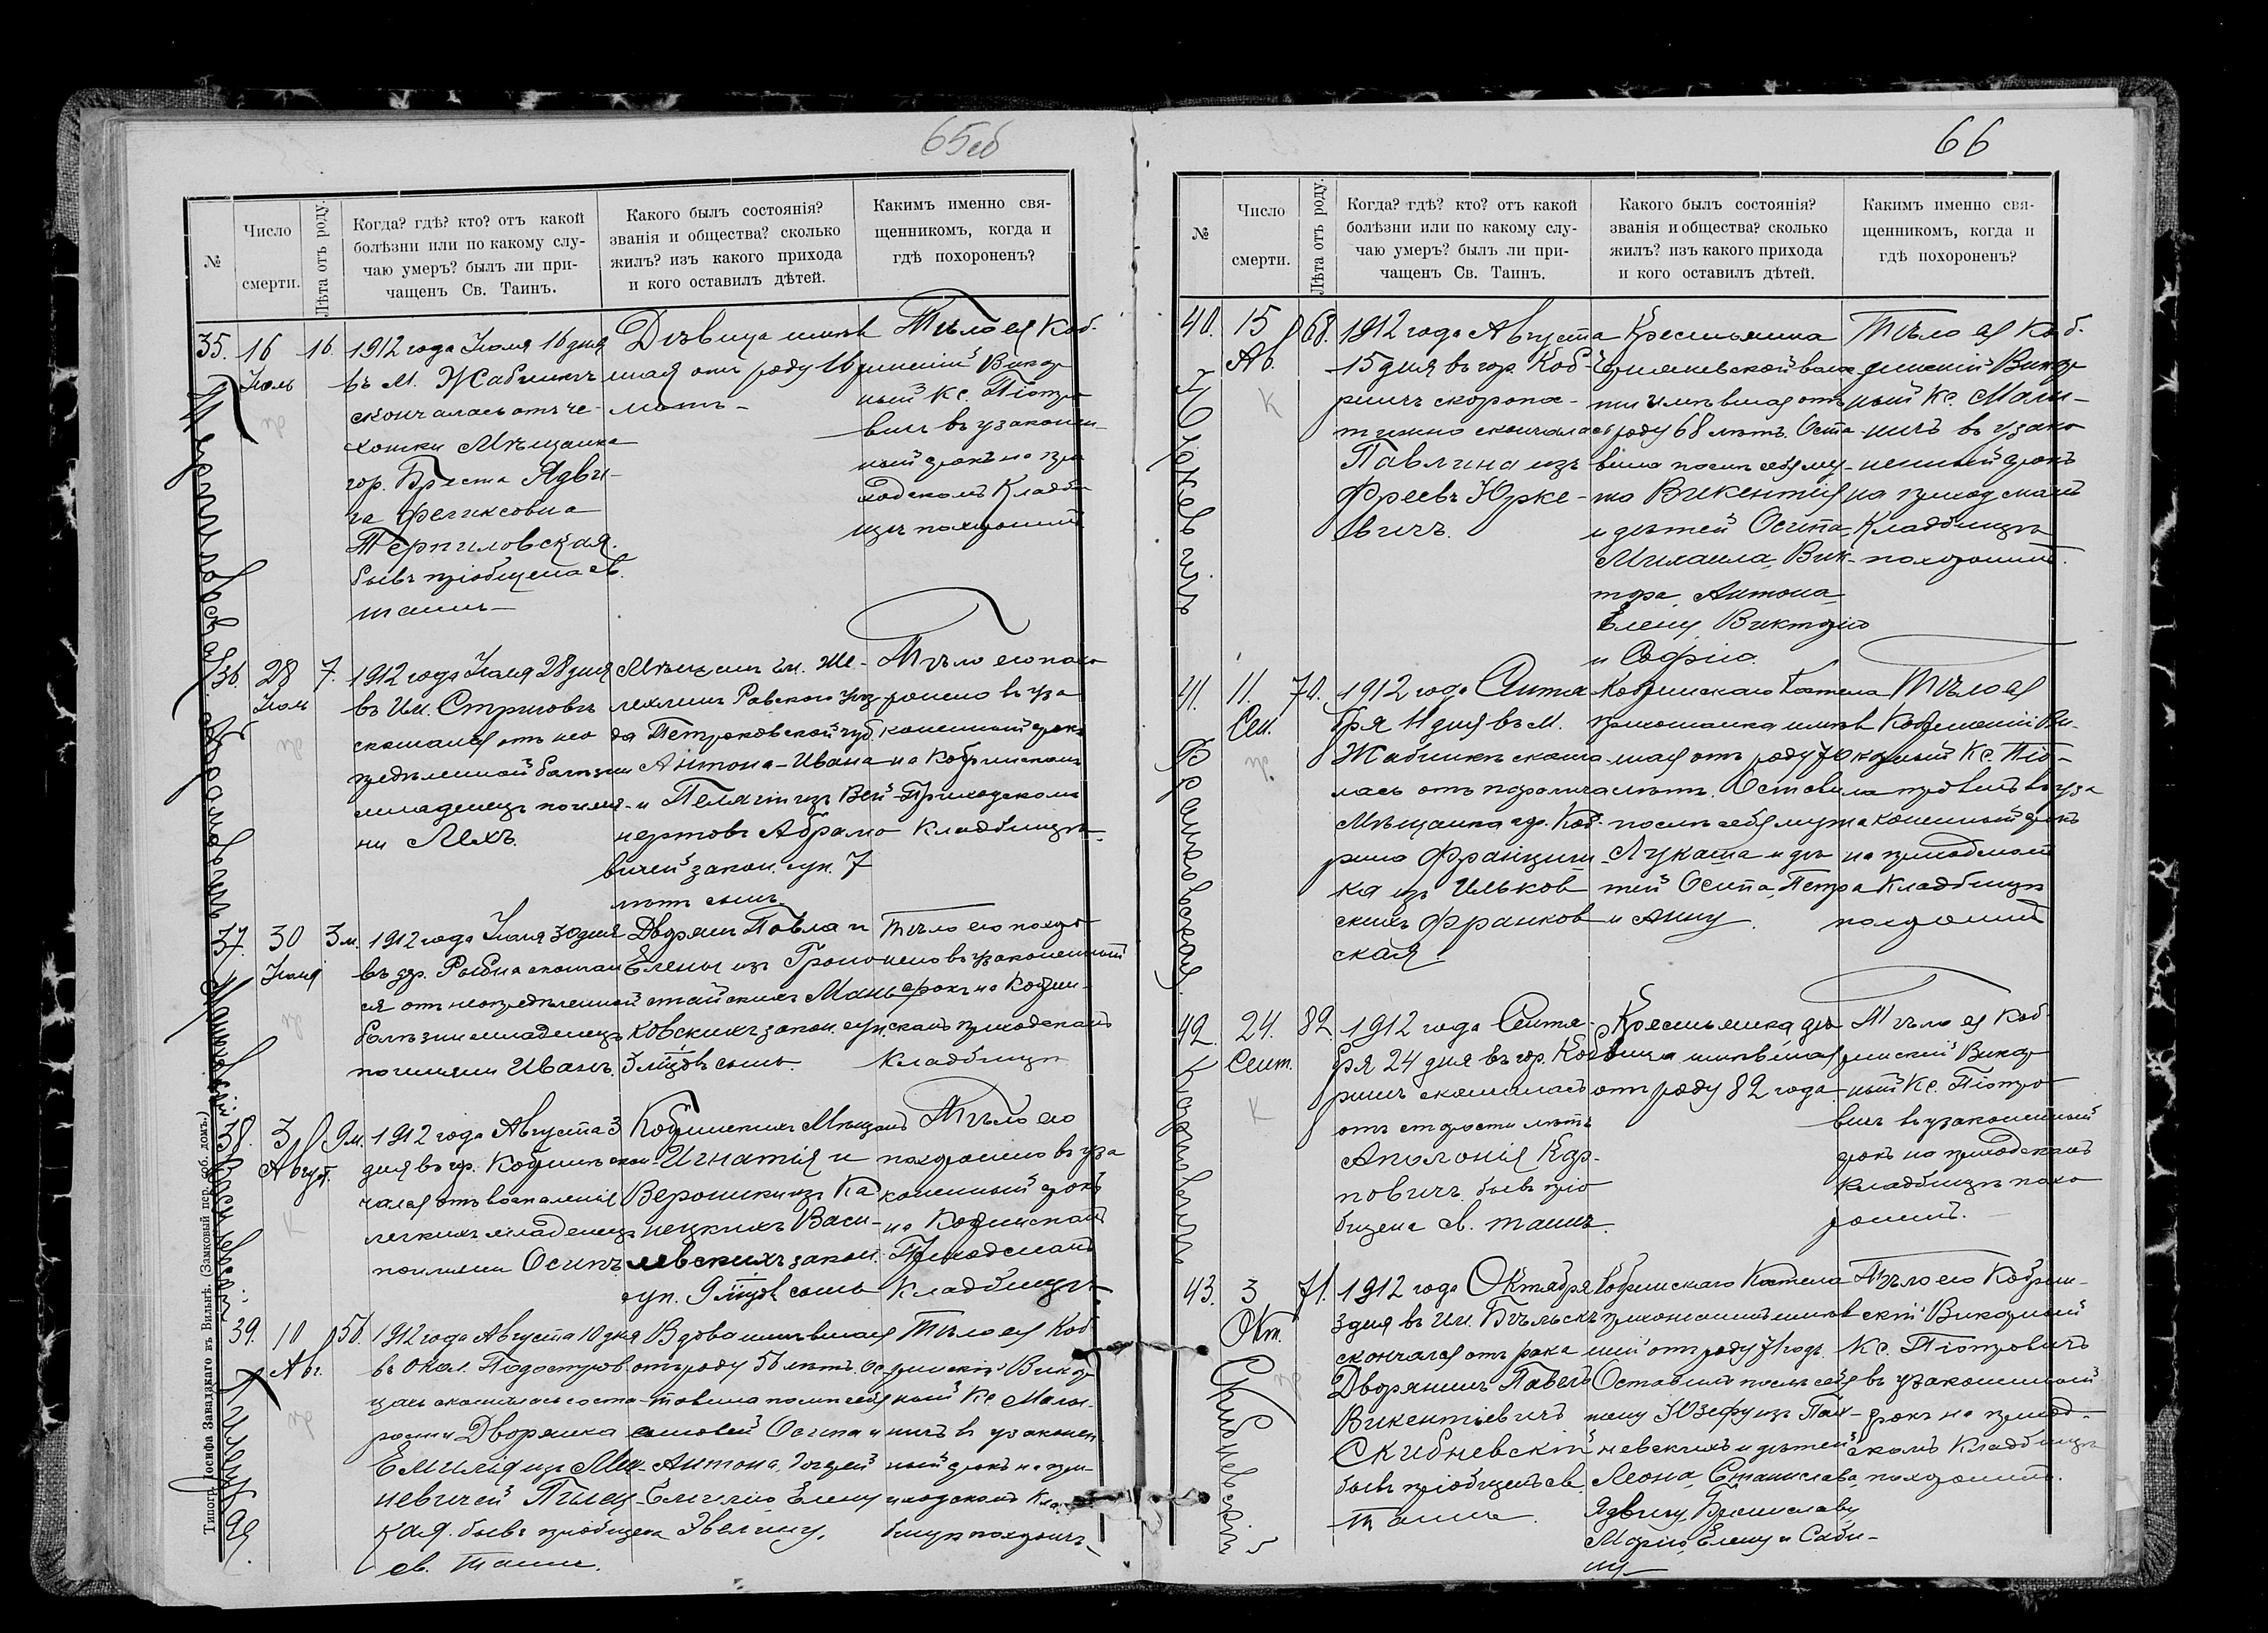 65об
№
Число
смерти.
Лѣта отъ роду.
Когда? гдѣ? кто? отъ какой
болѣзни или по какому слу-
чаю умеръ? былъ ли при-
чащенъ Св. Таинъ.
Какого былъ состоянія?
званія и общества? сколько
жилъ? изъ какого прихода
и кого оставилъ дѣтей.
Какимъ именно свя-
щенникомъ, когда и
гдѣ похороненъ?
35.
16
Іюль
16.
Терпиловская
1912 года Іюля 16 дня
въ м. Жабинкѣ
скончалась отъ че-
хотки Мѣщанка
гор. Бреста Ядви-
га Феликсовна
Терпиловская.
бывъ пріобщена св.
таинъ
Дѣвица имѣв
шая отъ роду 16
лѣтъ
Тѣло ея Коб-
ринскій Викар
ный Кс. Піотро
вичъ въ узаконен
ный срокъ на при
ходскомъ Кладби
щѣ похоронилъ
36.
28
Іюля
7.
Абрамовичъ
1912 года Іюля 28 дня
въ Им. Стриговѣ
скончался отъ нео
предѣленной болѣзни
младенецъ по име-
ни Лехъ.
Мѣщанъ гм. Же-
лехлинъ Равского уѣз
да Петроковской губ.
Антона-Ивана
и Пелагіи изъ Вей-
нертовъ Абрамо
вичей закон. суп. 7
лѣтъ сынъ
Тѣло его похо
ронено въ уза
коненный срокъ
на Кобринскомъ
Приходскомъ
Кладбищѣ
37.
30
Іюля
3 м.
Маньковскій
1912 года Іюля 30 дня
въ дер. Рыбна скончал
ся отъ неопредѣленной
болѣзни младенецъ
по имени Иванъ.
Дворянъ Павла и
Елены изъ Громо
стайскихъ Мань
ковскихъ закон. суп.
3 мѣсяцевъ сынъ.
Тѣло его похоро
нено въ узаконенный
срокъ на Кобрин-
скомъ приходскомъ
Кладбищѣ
38.
3
Август.
9 м.
Василевскій
1912 года Августа 3
дня въ гор. Кобринѣ скон-
чался отъ воспаленія
легкихъ младенецъ
по имени Осипъ.
Кобринскихъ Мѣщанъ
Игнатія и
Вероники изъ Ка
нецкихъ Васи-
левскихъ закон.
суп. 9 мѣсяцевъ сынъ
Тѣло его
похоронено въ уза
коненный срокъ
на Кобринскомъ
Приходскомъ
Кладбищѣ
39.
10
Авг.
56.
Пилецкая.
1912 года Августа 10 дня
въ окол. Подостров
цахъ скончалась со ста-
рости Дворянка
Емилія изъ Ми-
невичей Пилец
кая. бывъ пріобщена
св. Таинъ.
Вдова имѣвшая
отъ роду 56 лѣтъ. Ос
тавила послѣ себя
сыновей Осипа и
Антона, дочерей
Емилію Елену и
Эвелину.
Тѣло ея Коб
ринскій Викар
ный Кс Мали-
ничъ въ узаконен
ный срокъ на при-
ходскомъ Клад
бищѣ похорон.
Типогр. Іосифа Завадзкаго въ Вильнѣ. (Замковый пер. соб. домъ.)
66
№
Число
смерти.
Лѣта отъ роду.
Когда? гдѣ? кто? отъ какой
болѣзни или по какому слу-
чаю умеръ? былъ ли при-
чащенъ Св. Таинъ.
Какого былъ состоянія?
званія и общества? сколько
жилъ? изъ какого прихода
и кого оставилъ дѣтей.
Какимъ именно свя-
щенникомъ, когда и
гдѣ похороненъ?
40.
15
Ав.
68.
Юркевичъ
1912 года Августа
15 дня въ гор. Коб-
ринѣ скоропо-
стижно скончалась
Павлина изъ
Фреевъ Юрке-
вичъ.
Крестьянка
воло
сти имѣвшая отъ
роду 68 лѣтъ. Оста-
вила послѣ себя му-
жа Викентія
и дѣтей Осипа
Михаила, Вик-
тора, Антона
Елену, Викторію
и Софію.
Тѣло ея Коб-
ринскій Викар
ный Кс. Мали-
ничъ въ узако
ненный срокъ
на приходскомъ
Кладбищѣ
похоронилъ.
41.
11.
Сен.
70.
Франковская
1912 года Сентя
бря 11 дня въ м.
Жабинкѣ сконча
лась отъ паралича
Мѣщанка гор. Коб-
рина Францишка
изъ Ильков
скихъ Франков
ская
Кобринскаго Костела
прихожанка имѣв
шая отъ роду 70
лѣтъ. Оставила
послѣ себя мужа
Лукаша и дѣ
тей Осипа, Петра
и Анну
Тѣло ея
Кобринскій Ви-
карный Кс. Піо-
тровичъ въ уза
коненный срокъ
на приходскомъ
Кладбищѣ
похоронилъ
42.
24.
Сент.
82.
Карповичъ
1912 года Сентя-
бря 24 дня въ гор. Коб
ринѣ скончалась
отъ старости лѣтъ
Аполонія Кар-
повичъ. бывъ прі
общена св. таинъ.
Крестьянка дѣ
вица имѣвшая
отъ роду 82 года
Тѣло ея Коб
ринскій Викар
ный Кс. Піотро
вичъ въ узаконенный
срокъ на приходскомъ
Кладбищѣ похо
ронилъ.
43.
3
Окт.
71.
Скибневскій
1912 года Октября
3 дня въ Им. Бѣльскъ
скончался отъ рака
Дворянинъ Павелъ
Викентіевичъ
Скибневскій
бывъ пріобщенъ св.
таинъ.
Кобринскаго Костела
прихожанинъ имѣв
шій отъ роду 71 годъ.
Оставилъ послѣ себя
жену Юзефу изъ Пан-
невскихъ и дѣтей
Леона, Станислава,
Ядвигу, Брониславу,
Марію, Елену и Саби-
ну
Тѣло его Кобрин-
скій Викарный
Кс. Піотровичъ
въ узаконенный
срокъ на приход-
скомъ Кладбищѣ
похоронилъ.